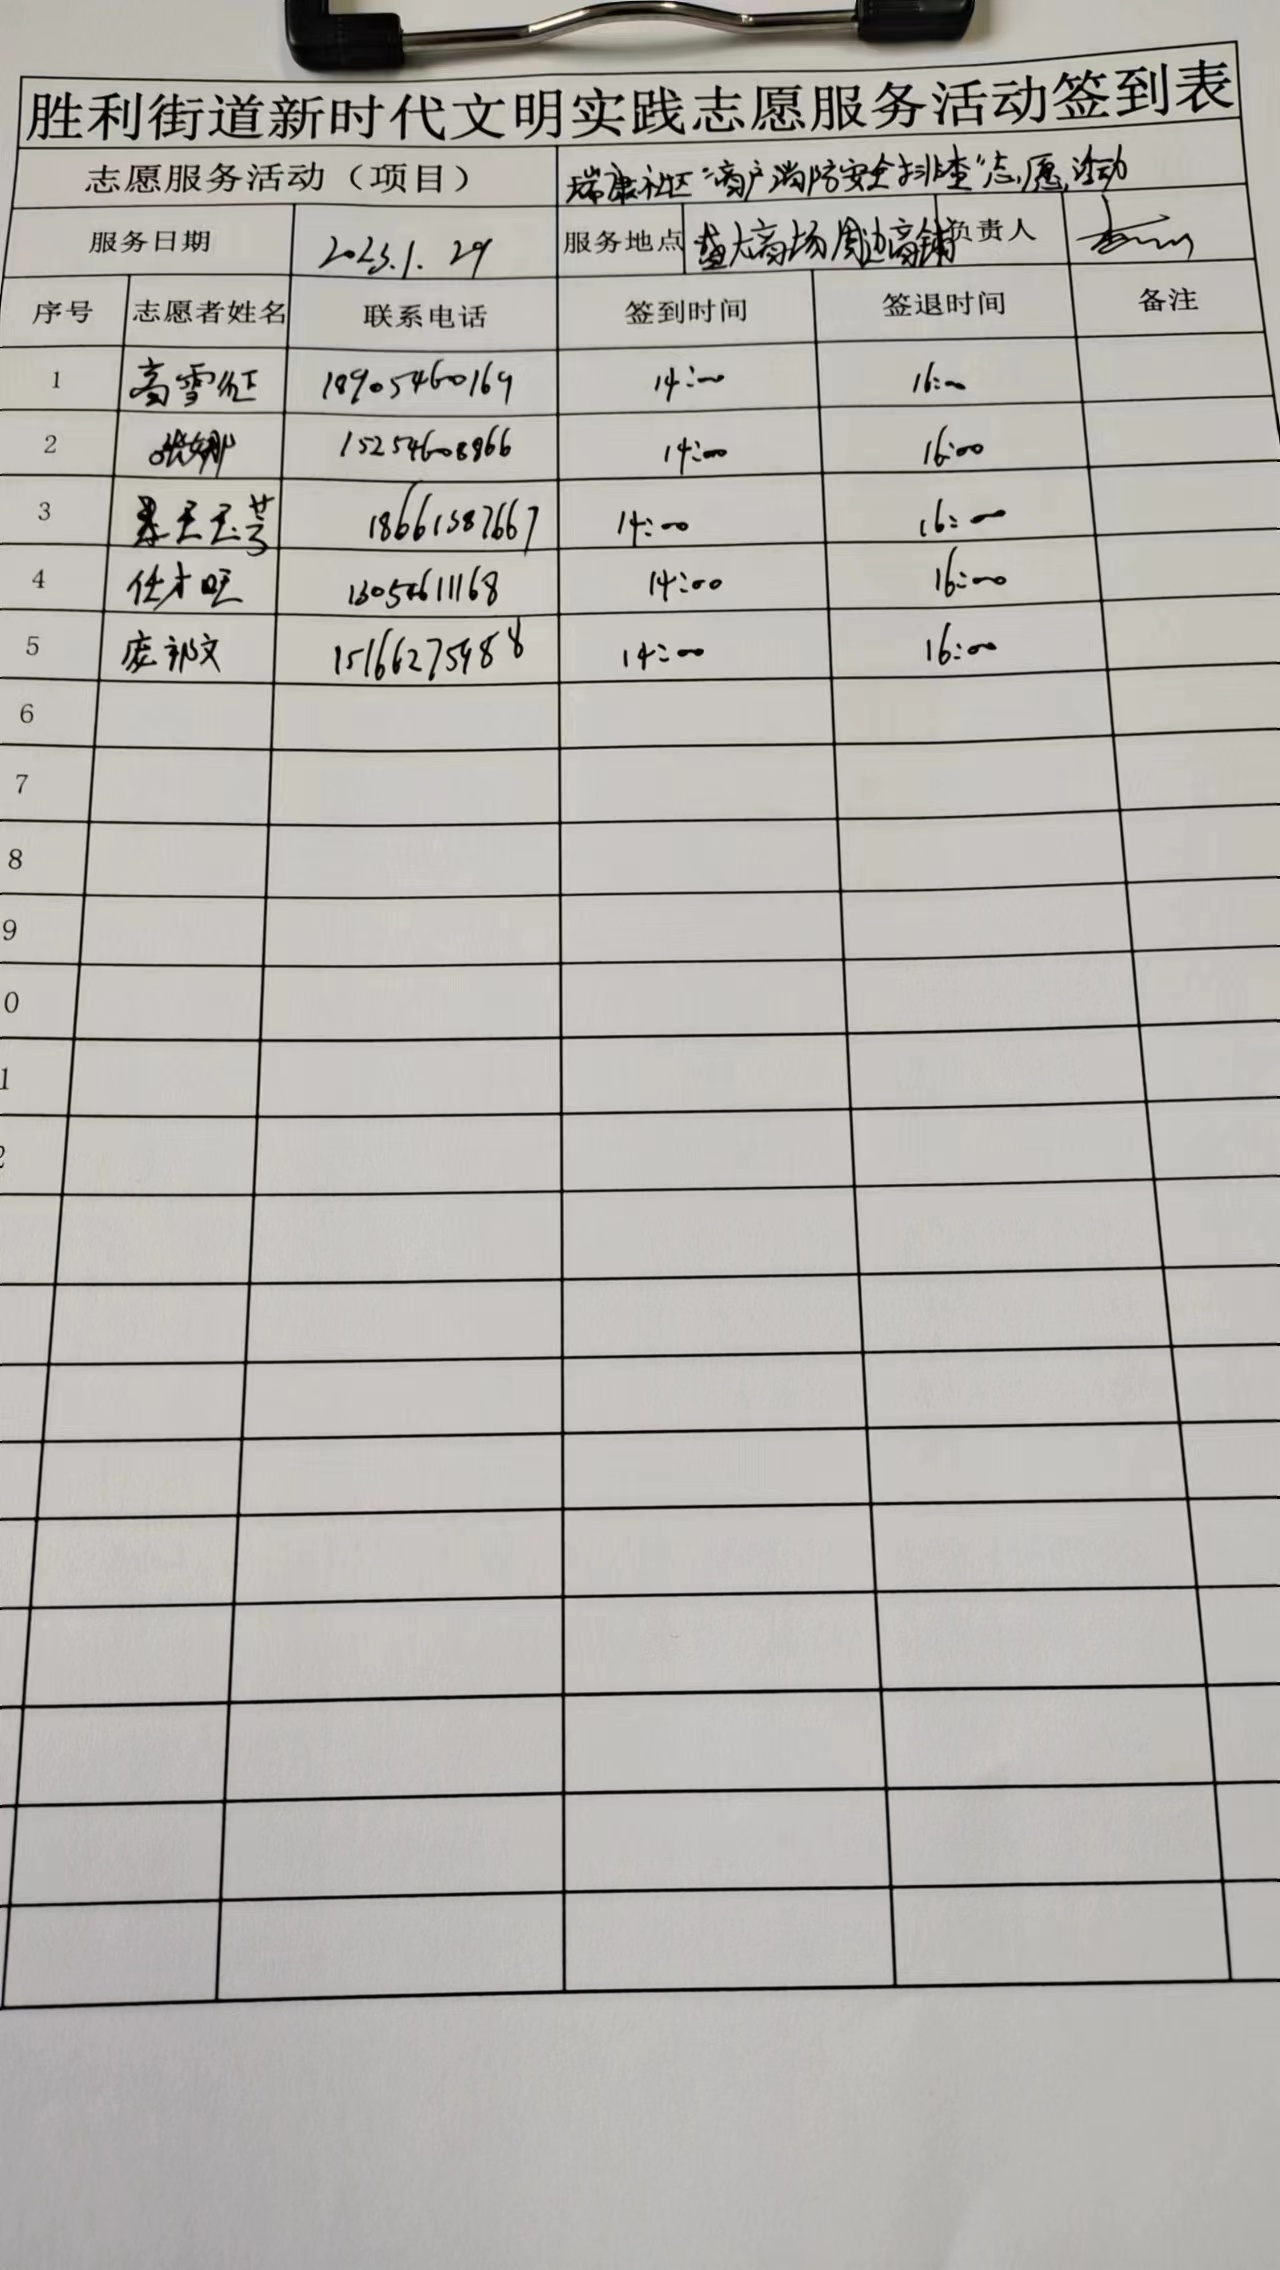 胜利街道新时代文明实践志愿服务活动签到表
志愿服务活动（项目） 瑞康社区“商户消防安全排查”志愿活动
服务日期 2023.1.29 服务地点 盛大商场周边商铺 负责人
序号 志愿者姓名 联系电话 签到时间 签退时间 备注
1 高雪征 18905460169 14:00 16:00
2 张娜 15254608966 14:00 16:00
3 18661387667 14:00 16:00
4 任才旺 13054611168 14:00 16:00
5 庞郭文 15166275988 14:00 16:00
6
7
8
9
0
1
2